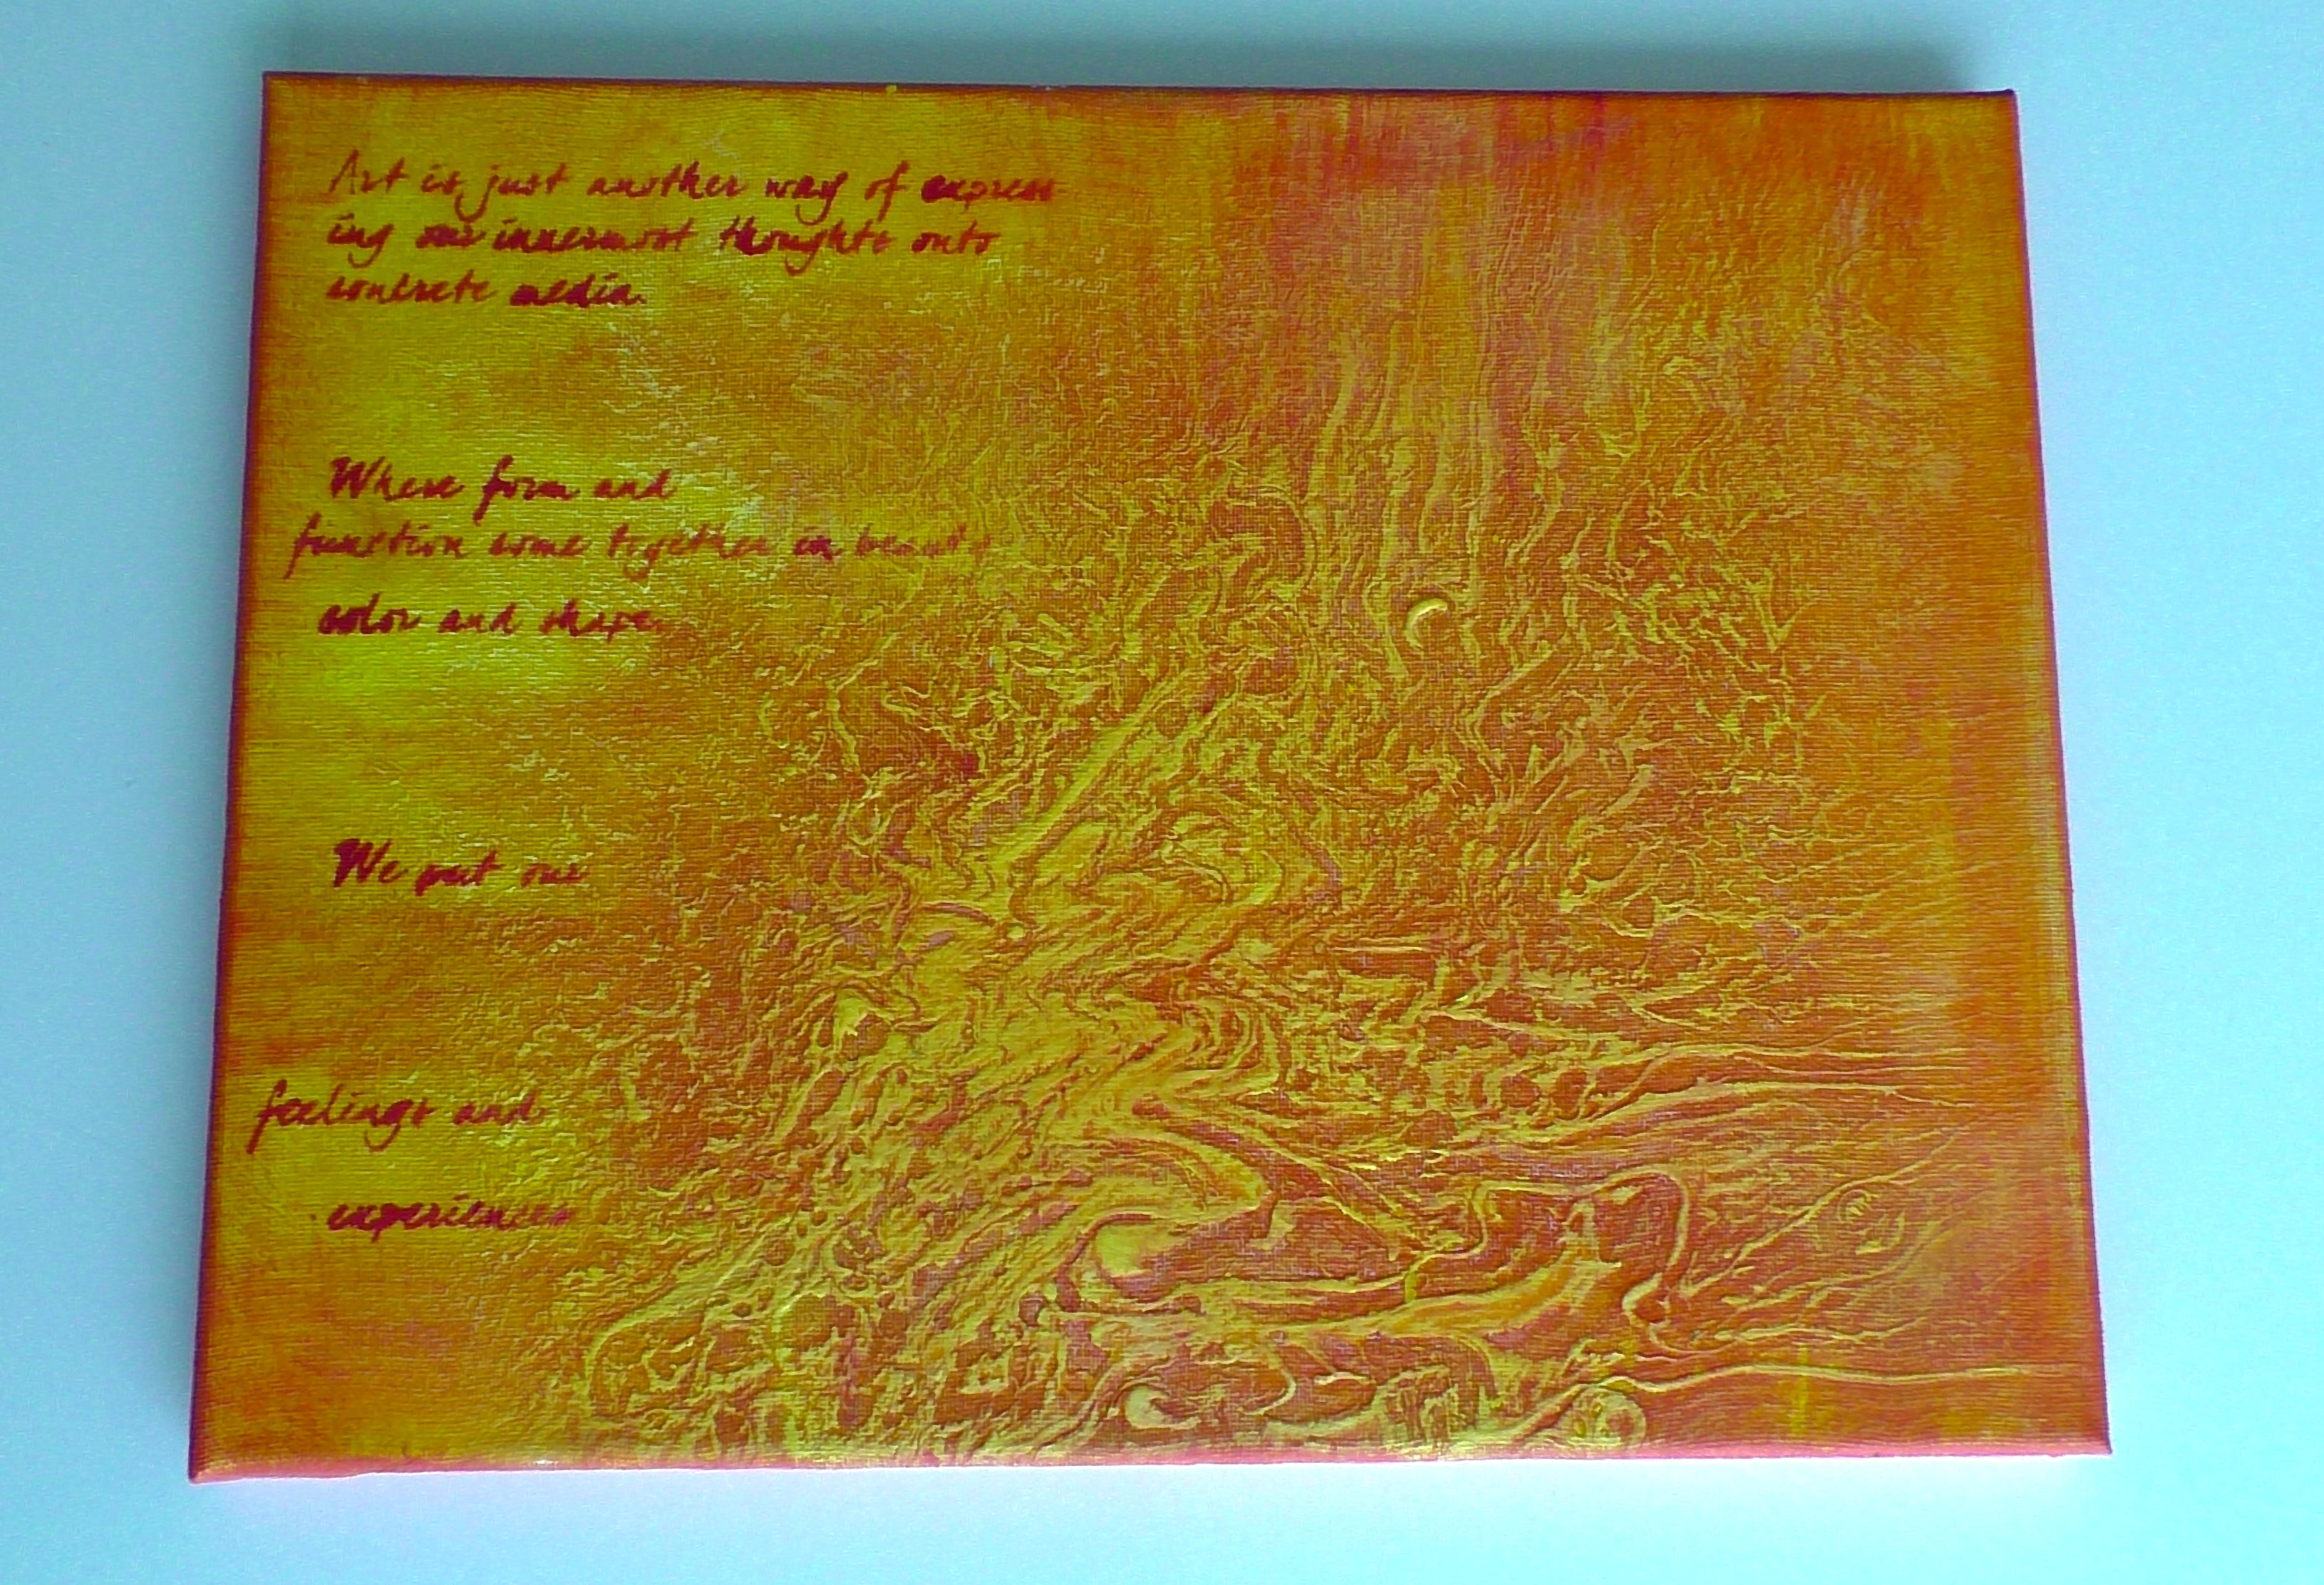 Art is just another way of express
ing our innermost thoughts onto
concrete media.
Where form and
function come together in beauty
color and shape.
We put our
feelings and
experiences